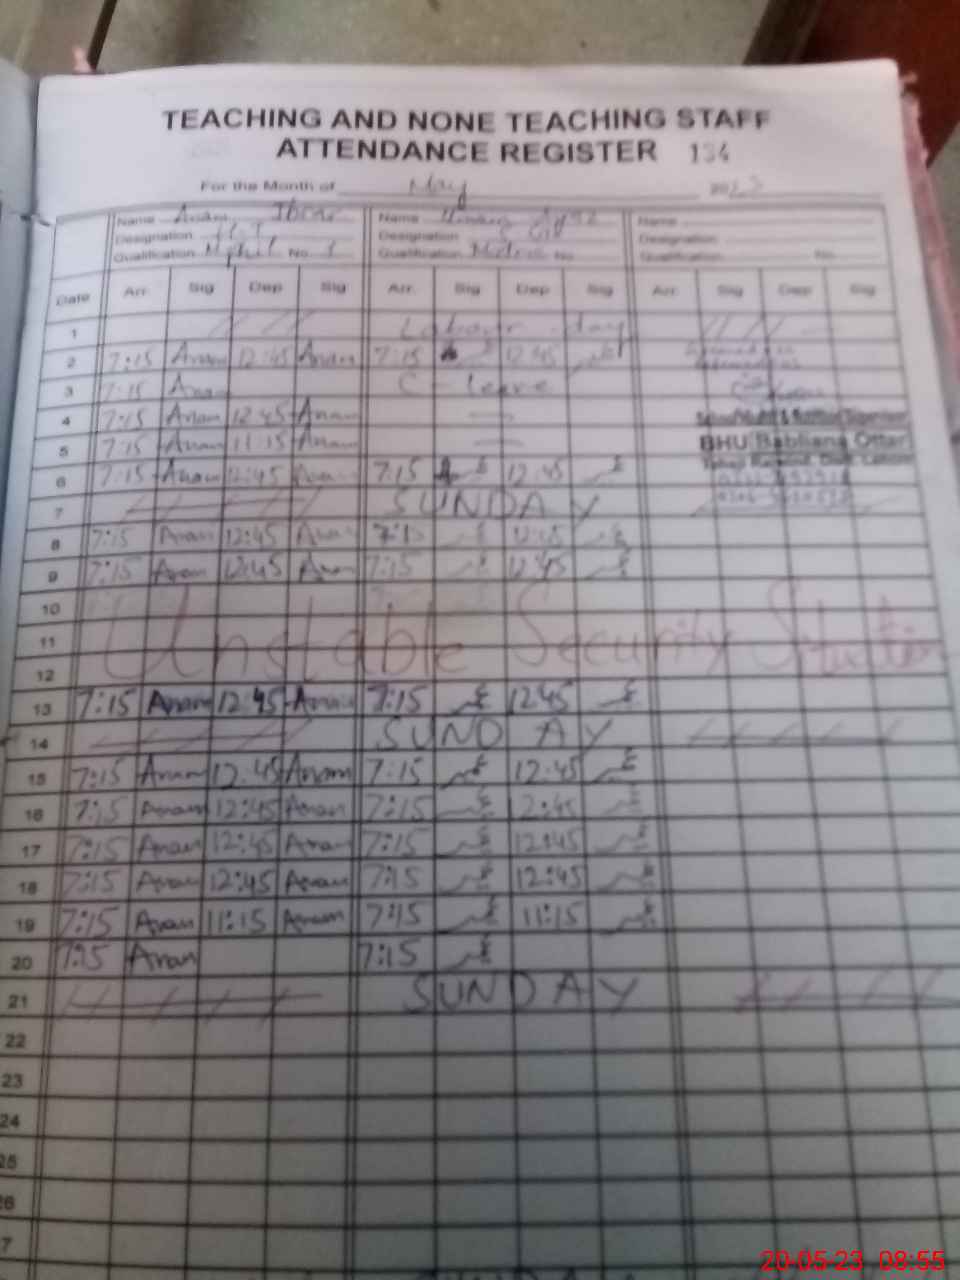 TEACHING AND NONE TEACHING STAFF
ATTENDANCE REGISTER 134
For the Month of May
Name Anam Ibrar Name Name
Designation Designation Designation
Qualification Mphil No. 1 Qualification No Qualification No
Date Arr. Sig Dep Sig Arr. Sig Dep Sig Arr Sig Dep Sig
1 Labour day
2 7:15 Anam 12:45 Anam 7:15 12:45
3 7:15 Anam C - leave
4 7:15 Anam 12:45 Anam
5 7:15 Anam 11:15 Anam BHU Babliana Ottar
6 7:15 Anam 12:45 Anam 7:15 12:45
7 SUNDAY
8 7:15 Anam 12:45 Anam 7:15 12:45
9 7:15 Anam 12:45 Anam 7:15 12:45
10
11 Unstable Security Situation
12
13 7:15 Anam 12:45 Anam 7:15 12:45
14 SUNDAY
15 7:15 Anam 12:45 Anam 7:15 12:45
16 7:15 Anam 12:45 Anam 7:15 12:45
17 7:15 Anam 12:45 Anam 7:15 12:45
18 7:15 Anam 12:45 Anam 7:15 12:45
19 7:15 Anam 11:15 Anam 7:15 11:15
20 7:15 Anam 7:15
21 SUNDAY
22
23
24
25
26
7
20-05-23 08:55